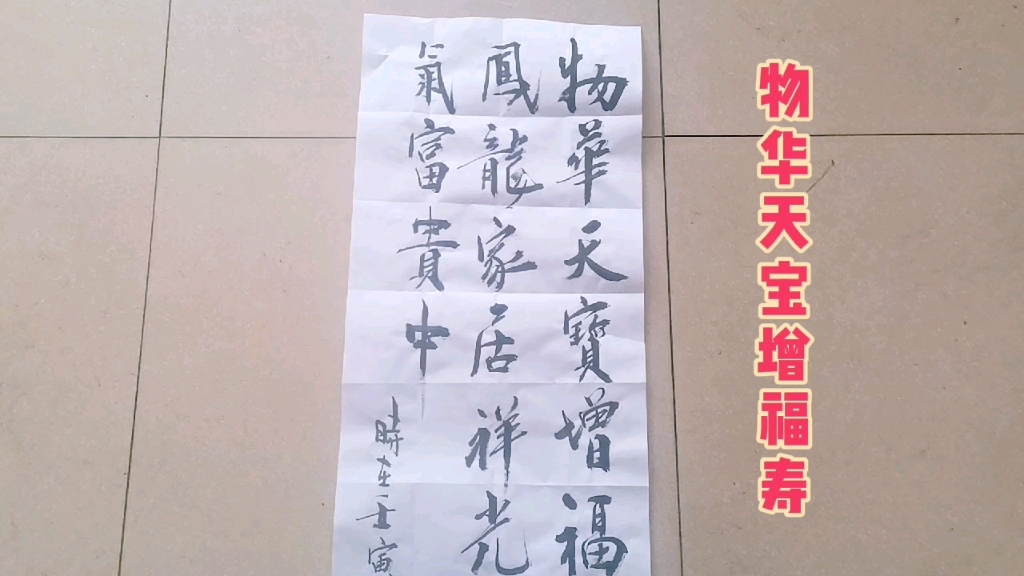 物華天寶增福
鳳龍家居祥光
氣富貴中
時在壬寅
物华天宝增福寿